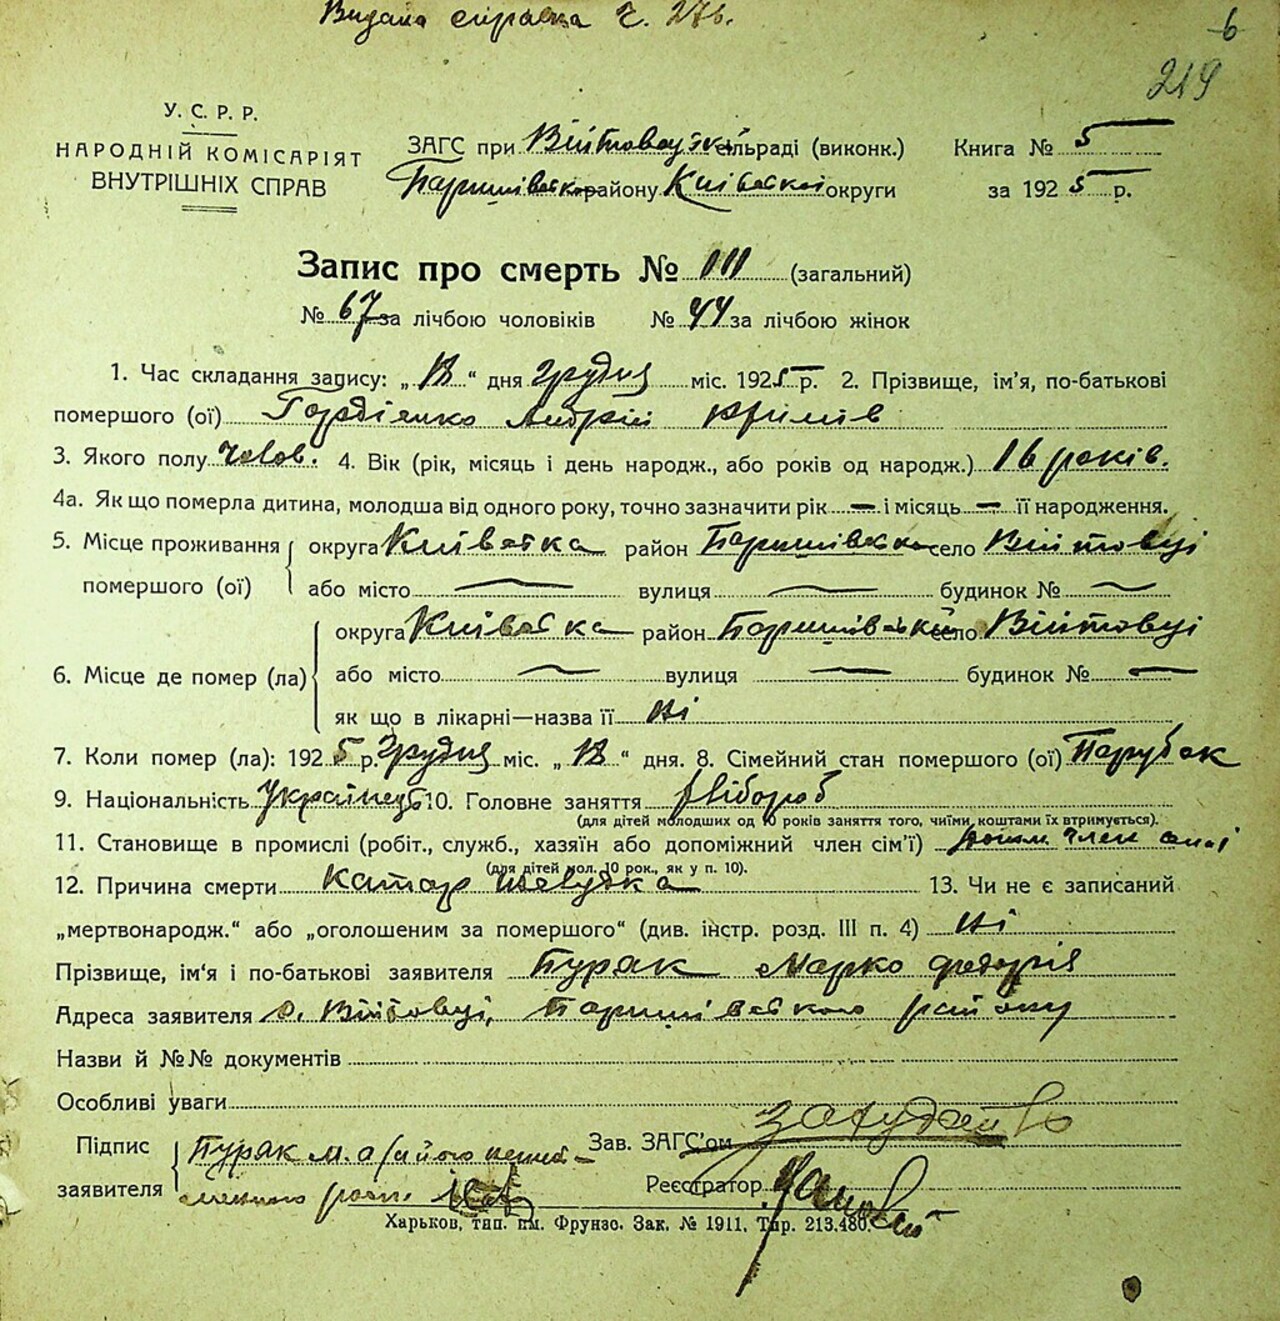 Видана справка Ч. 276.
6
219
У. С. Р. Р.
НАРОДНІЙ КОМІСАРІЯТ
ВНУТРІШНІХ СПРАВ
ЗАГС при Війтовецькій сільраді (виконк.) Книга № 5
Баришівського району Київської округи за 1925 р.
Запис про смерть № 111 (загальний)
№ 67 за лічбою чоловіків № 44 за лічбою жінок
1. Час складання запису: „ “ дня грудня міс. 1925 р. 2. Прізвище, ім'я, по-батькові
помершого (ої) Гордієнко Андрій
3. Якого полу чолов. 4. Вік (рік, місяць і день народж., або років од народж.) 16 років.
4а. Як що померла дитина, молодша від одного року, точно зазначити рік — і місяць — її народження.
5. Місце проживання округа Київська район Баришівський село Війтовці
помершого (ої) або місто — вулиця — будинок № —
округа Київська район Баришівський село Війтовці
6. Місце де помер (ла) або місто — вулиця — будинок № —
як що в лікарні—назва її ні
7. Коли помер (ла): 1925 р. грудня міс. „ “ дня. 8. Сімейний стан помершого (ої) Парубок
9. Національність Українець 10. Головне заняття хлібороб
(для дітей молодших од 10 років заняття того, чиїми коштами їх втримується).
11. Становище в промислі (робіт., служб., хазяїн або допоміжний член сім'ї) допом. член
(для дітей мол. 10 рок., як у п. 10).
12. Причина смерти Катар шлунка 13. Чи не є записаний
„мертвонародж.“ або „оголошеним за помершого“ (див. інстр. розд. III п. 4) ні
Прізвище, ім'я і по-батькові заявителя Пурак Марко
Адреса заявителя с. Війтовці, Баришівського району
Назви й №№ документів
Особливі уваги
Підпис Пурак М. а Зав. ЗАГС'ом
заявителя Реєстратор
Харьков, тип. им. Фрунзо. Зак. № 1911. Тир. 213.480.